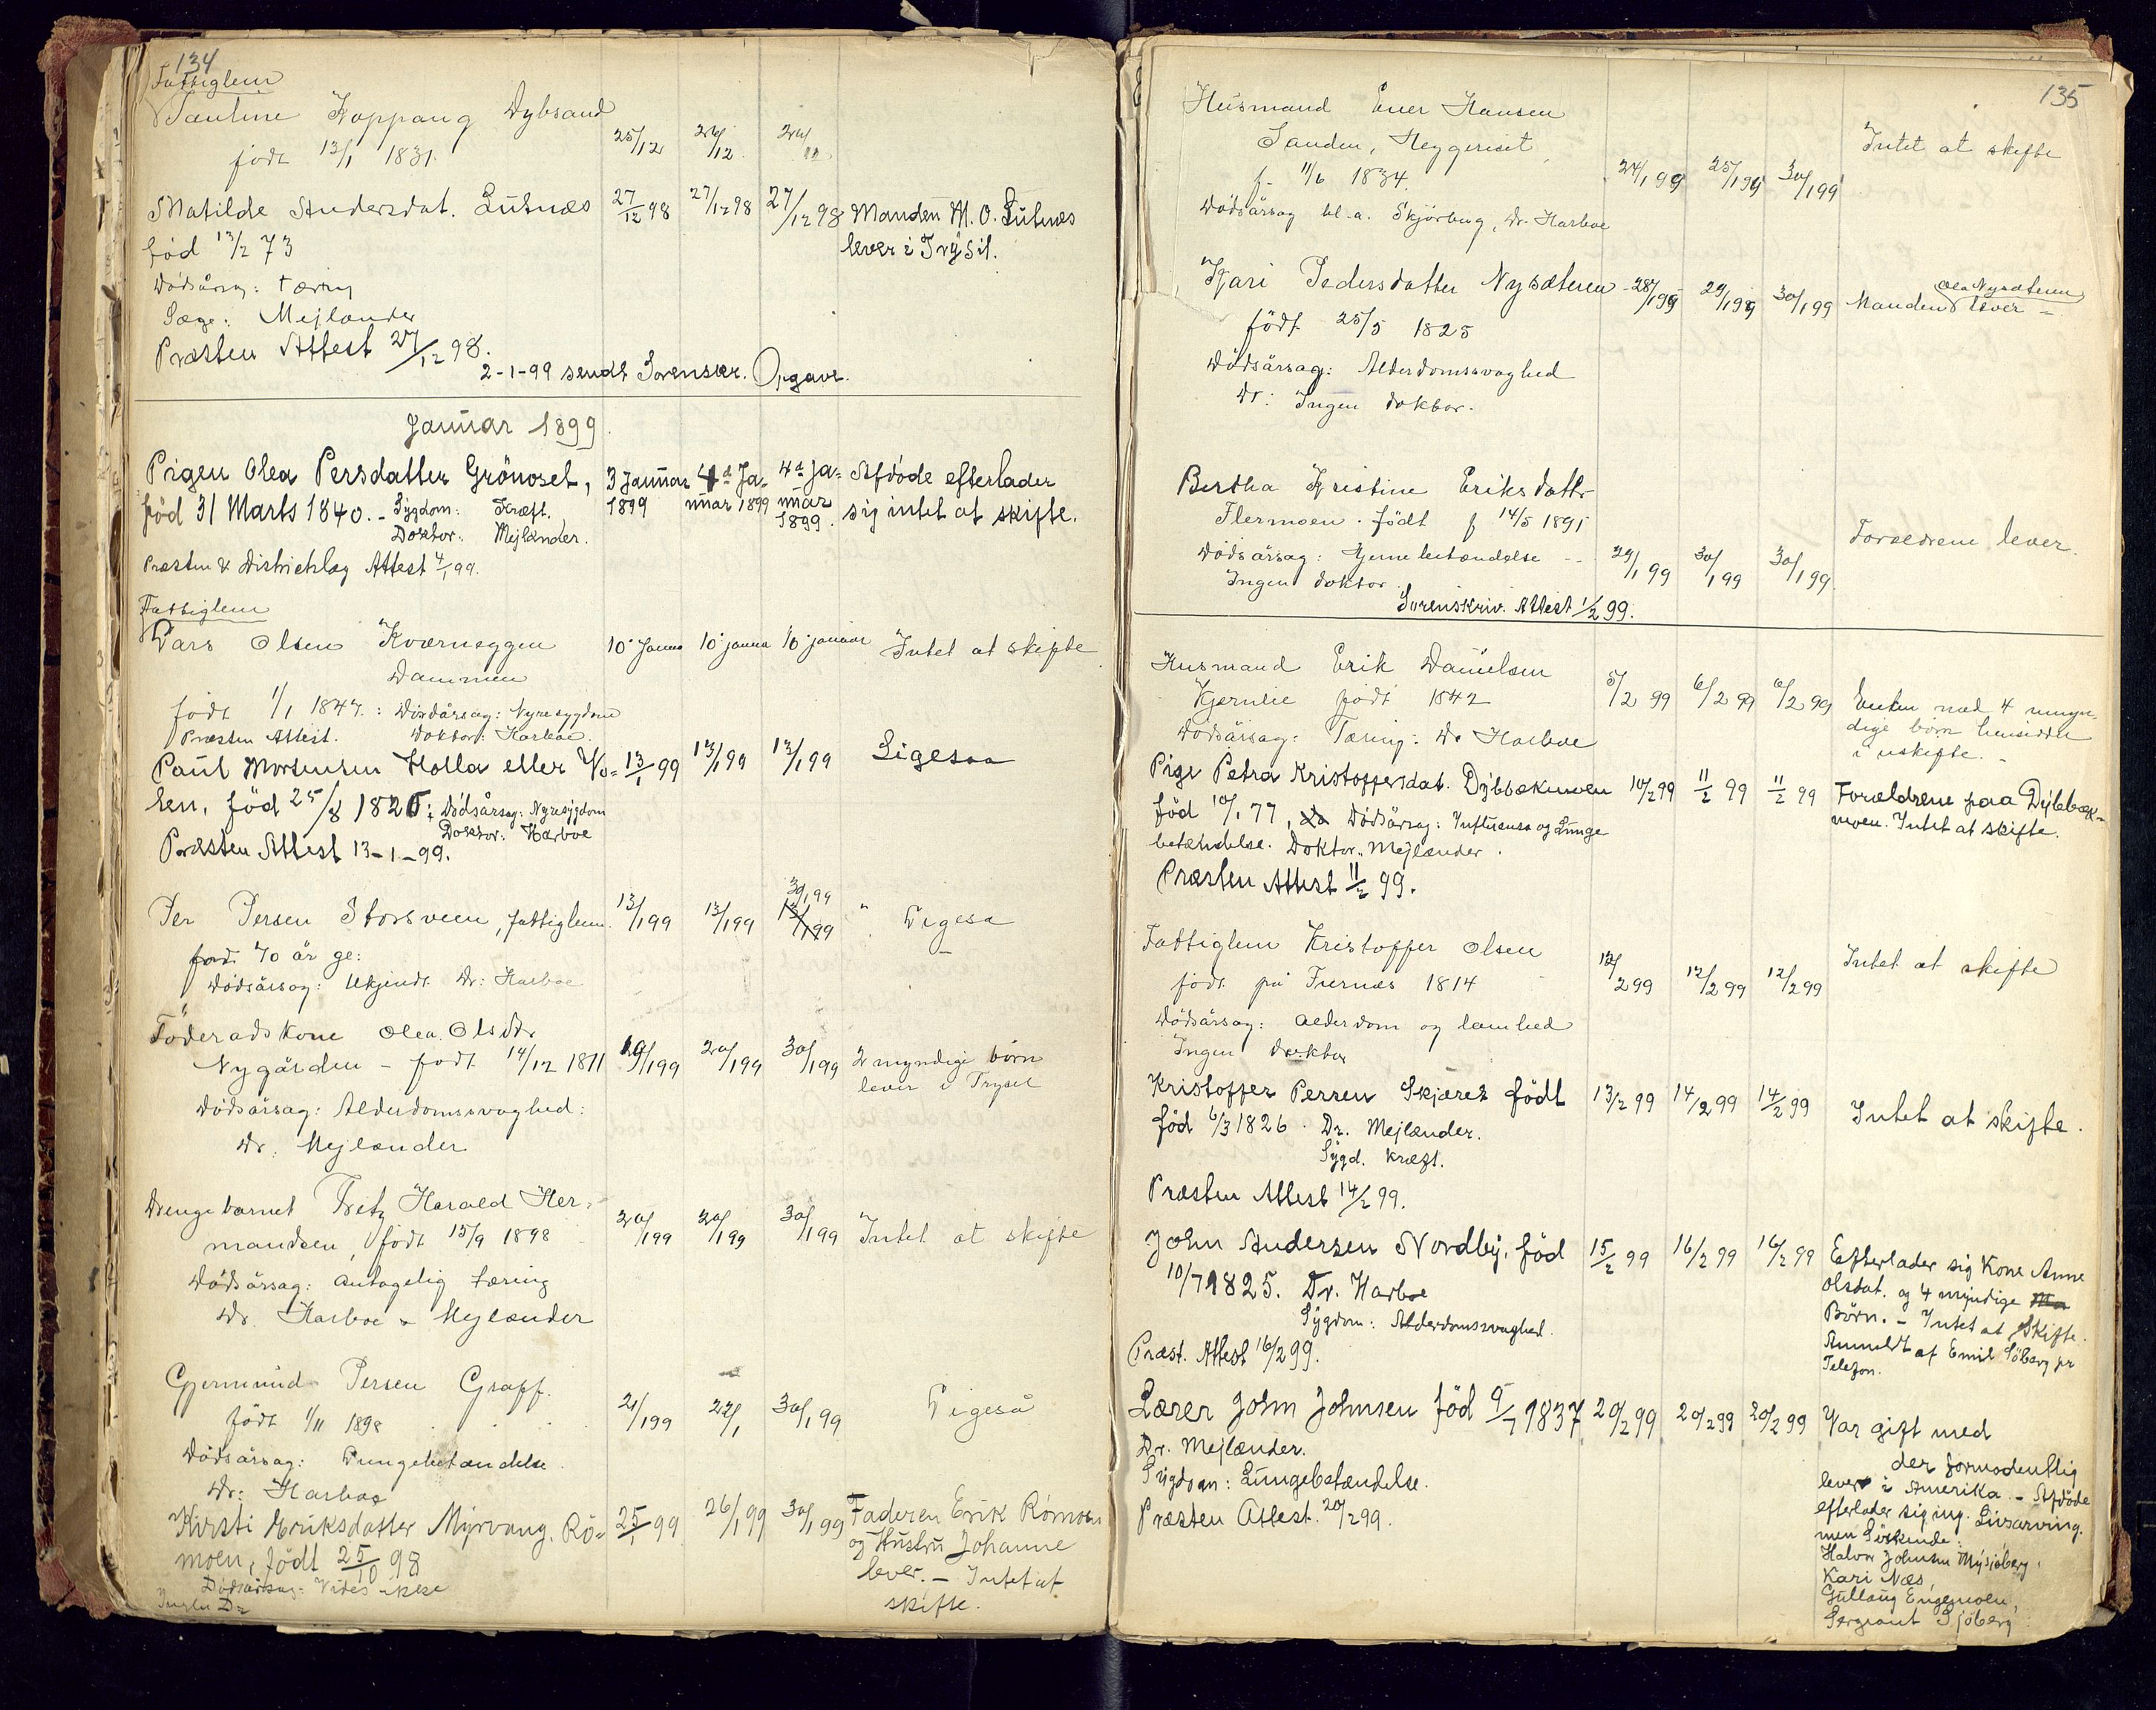 134
Fattiglem
Pauline Koppang Dybsand 25/12 26/12 26/12
født 13/1 1831.
Matilde Andersdat. Lutnæs 27/12 98 27/12 98 27/12 98 Manden M. O. Lutnæs
fød 13/2 73 lever i Trysil.
Dødsårsag: tæring
Læge: Mejlænder
Præsten Attest 27/12 98.
2-1-99 sendt Sorenskr. Opgave.
Januar 1899.
Pigen Olea Persdatter Grönoset, 3 Januar 4d Ja- 4d Ja- Afdøde efterlader
fød 31 Marts 1840. - Sygdom: Kræft. 1899 nuar 1899 nuar 1899. sig intet at skifte.
Doktor: Mejlænder.
Præsten & Distriktslæg Attest 4/1 99.
Fattiglem
Lars Olsen Kværneggen 10. Janua 10. janua 10 januar Intet at skifte
Dammen
født 1/1 1847. : Dødårsag: Nyresygdom
Præsten Attest. Doktor: Harboe.
Paul Mortensen Holla eller Vo- 13/1 99 13/1 99 13/1 99 Ligesaa
len, fød 25/8 1826; Dødsårsag: Nyresygdom
Doktor: Harboe
Præsten Attest 13-1-99.
Per Persen Storsveen, fattiglem 13/1 99 13/1 99 30/1 99 13/1 99 " Ligesa
fød 70 år gl:
Dødsårsag: Ukjendt Dr: Harboe
Föderadskone Olea Olsdtr.
Nygården - født 14/12 1811 19/1 99 20/1 99 30/1 99 2 myndige børn
lever i Trysil
Dødsårsag: Alderdomssvaghed:
Dr. Mejlænder
Drengebarnet Fritz Harald Her-
mandsen, født 15/9 1898 20/1 99 20/1 99 30/1 99 Intet at skifte
Dødsårsag: antagelig tæring
Dr. Harboe & Mejlænder
Gjermund Persen Graff. 21/1 99 22/1 30/1 99 Ligeså
født 1/11 1898
Dødsårsag: Lungebetændelse.
Dr: Harboe
Kirsti Eriksdatter Myrvang. Rö- 25/1 99 26/1 99 30/1 99 Faderen Erik Römoen
moen, født 25/10 98 og Hustru Johanne
Dødsårsag: Vides ikke lever. - Intet at
Ingen Dr skifte.
135
Husmand Ener Hansen
Sanden, Heggeriset 24/1 99 25/1 99 30/1 99 Intet at skifte
f. 11/6 1834.
Dødsårsag bl.a. Skjörbug, Dr. Harboe
Kari Pedersdatter Nysæteren 28/1 99 29/1 99 30/1 99 Manden Ole Nysæteren lever -
født 25/5 1825
Dødsårsag: Alderdomssvaghed
Dr: Ingen doktor.
Bertha Kristine Eriksdattr
Flermoen. født f 14/5 1891 Forældrene lever.
Dødsårsag: Hjernebetændelse 29/1 99 30/1 99 30/1 99
Ingen doktor.
Sorenskriv. Attest 1/2 99.
Husmand Erik Danielsen
Kjernlie født 1842 5/2 99 6/2 99 6/2 99 Enken med 4 umyn-
Dødsårsag: Tæring: Dr Harboe dige børn hensidder
i uskifte. -
Pige Petra Kristoffersdat. Dybbækmoen 10/2 99 11/2 99 11/2 99 Forældrene paa Dybbæk-
fød 10/1 77, Dødsårsag: Influensa og Lunge moen. Intet at skifte.
betændelse. Doktor: Mejlænder.
Præsten Attest 11/2 99.
Fattiglem Kristoffer Olsen
født på Furnæs 1814 12/2 99 12/2 99 12/2 99 Intet at skifte
Dødsårsag: Alderdom og lamhed
Ingen doktor
Kristoffer Persen Skjæret født 13/2 99 14/2 99 14/2 99 Intet at skifte.
fød 6/3 1826. Dr. Mejlænder.
Sygd. kræft.
Præsten Attest 14/2 99.
John Andersen Nordby, fød 15/2 99 16/2 99 16/2 99 Efterlader sig Kone Anne
10/7 1825. Dr. Harboe Olsdat. og 4 myndige
Sygdom: Alderdomssvaghed. Börn. - Intet at Skifte.
Præst. Attest 16/2 99. Anmeldt af Emil Sjöberg pr
Telefon.
Lærer John Johnsen fød 9/7 1837 20/2 99 20/2 99 20/2 99 Var gift med
Dr. Mejlænder. der formodentlig
Sygdom: Lungebetændelse. lever i Amerika. - Afdøde
Præsten Attest. 20/2 99. efterlader sig ing. Livsarving.
men Söskende:
Halvor Johnsen Mysjöberg,
Kari Næs,
Gullaug Engemoen,
Sergeant Sjöberg